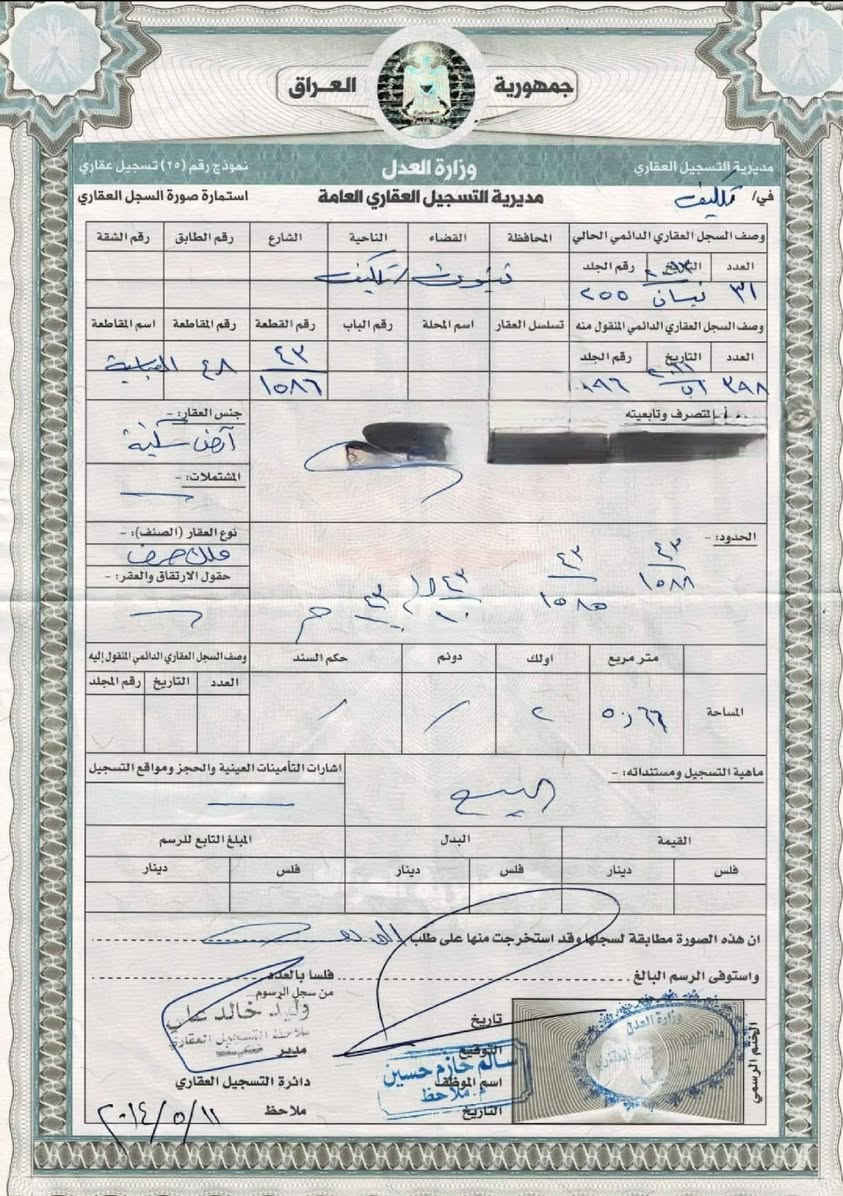 جمهورية العراق
مديرية التسجيل العقاري وزارة العدل نموذج رقم (٢٥) تسجيل عقاري
في/ تلكيف مديرية التسجيل العقاري العامة استمارة صورة السجل العقاري
وصف السجل العقاري الدائمي الحالي المحافظة القضاء الناحية الشارع رقم الطابق رقم الشقة
العدد التاريخ رقم الجلد
٣١ نيسان ٢٥٥ نينوى / تلكيف
وصف السجل العقاري الدائمي المنقول منه تسلسل العقار اسم المحلة رقم الباب رقم القطعة رقم المقاطعة اسم المقاطعة
العدد التاريخ رقم الجلد
٣٩٨ آب ٤٣ ٤٨
١٥٨٦
المتصرف وتابعيته جنس العقار: -
أرض سكنية
المشتملات: -
الحدود: - نوع العقار (الصنف): -
ملك صرف
حقول الارتقاق والعقر: -
٤٣ ٤٣ ٤٣ ٤٣
١٥٨٨ ١٥٨٥ ١٠
متر مربع اولك دونم حكم السند وصف السجل العقاري الدائمي المنقول إليه
العدد التاريخ رقم المجلد
المساحة ٥٠,٦٦ ٢
ماهية التسجيل ومستنداته: - اشارات التأمينات العينية والحجز ومواقع التسجيل
البيع
القيمة البدل المبلغ التابع للرسم
فلس دينار فلس دينار فلس دينار
ان هذه الصورة مطابقة لسجلها وقد استخرجت منها على طلب
واستوفى الرسم البالغ فلسا بالعدد
من سجل الرسوم
وليد خالد علي
ملاحظة التسجيل العقاري
تاريخ
التوقيع مدير
سالم حازم حسين
اسم الموظف دائرة التسجيل العقاري
م. ملاحظ
التاريخ ملاحظ
٢٠١٤/٥/١١
الختم الرسمي
وزارة العدل